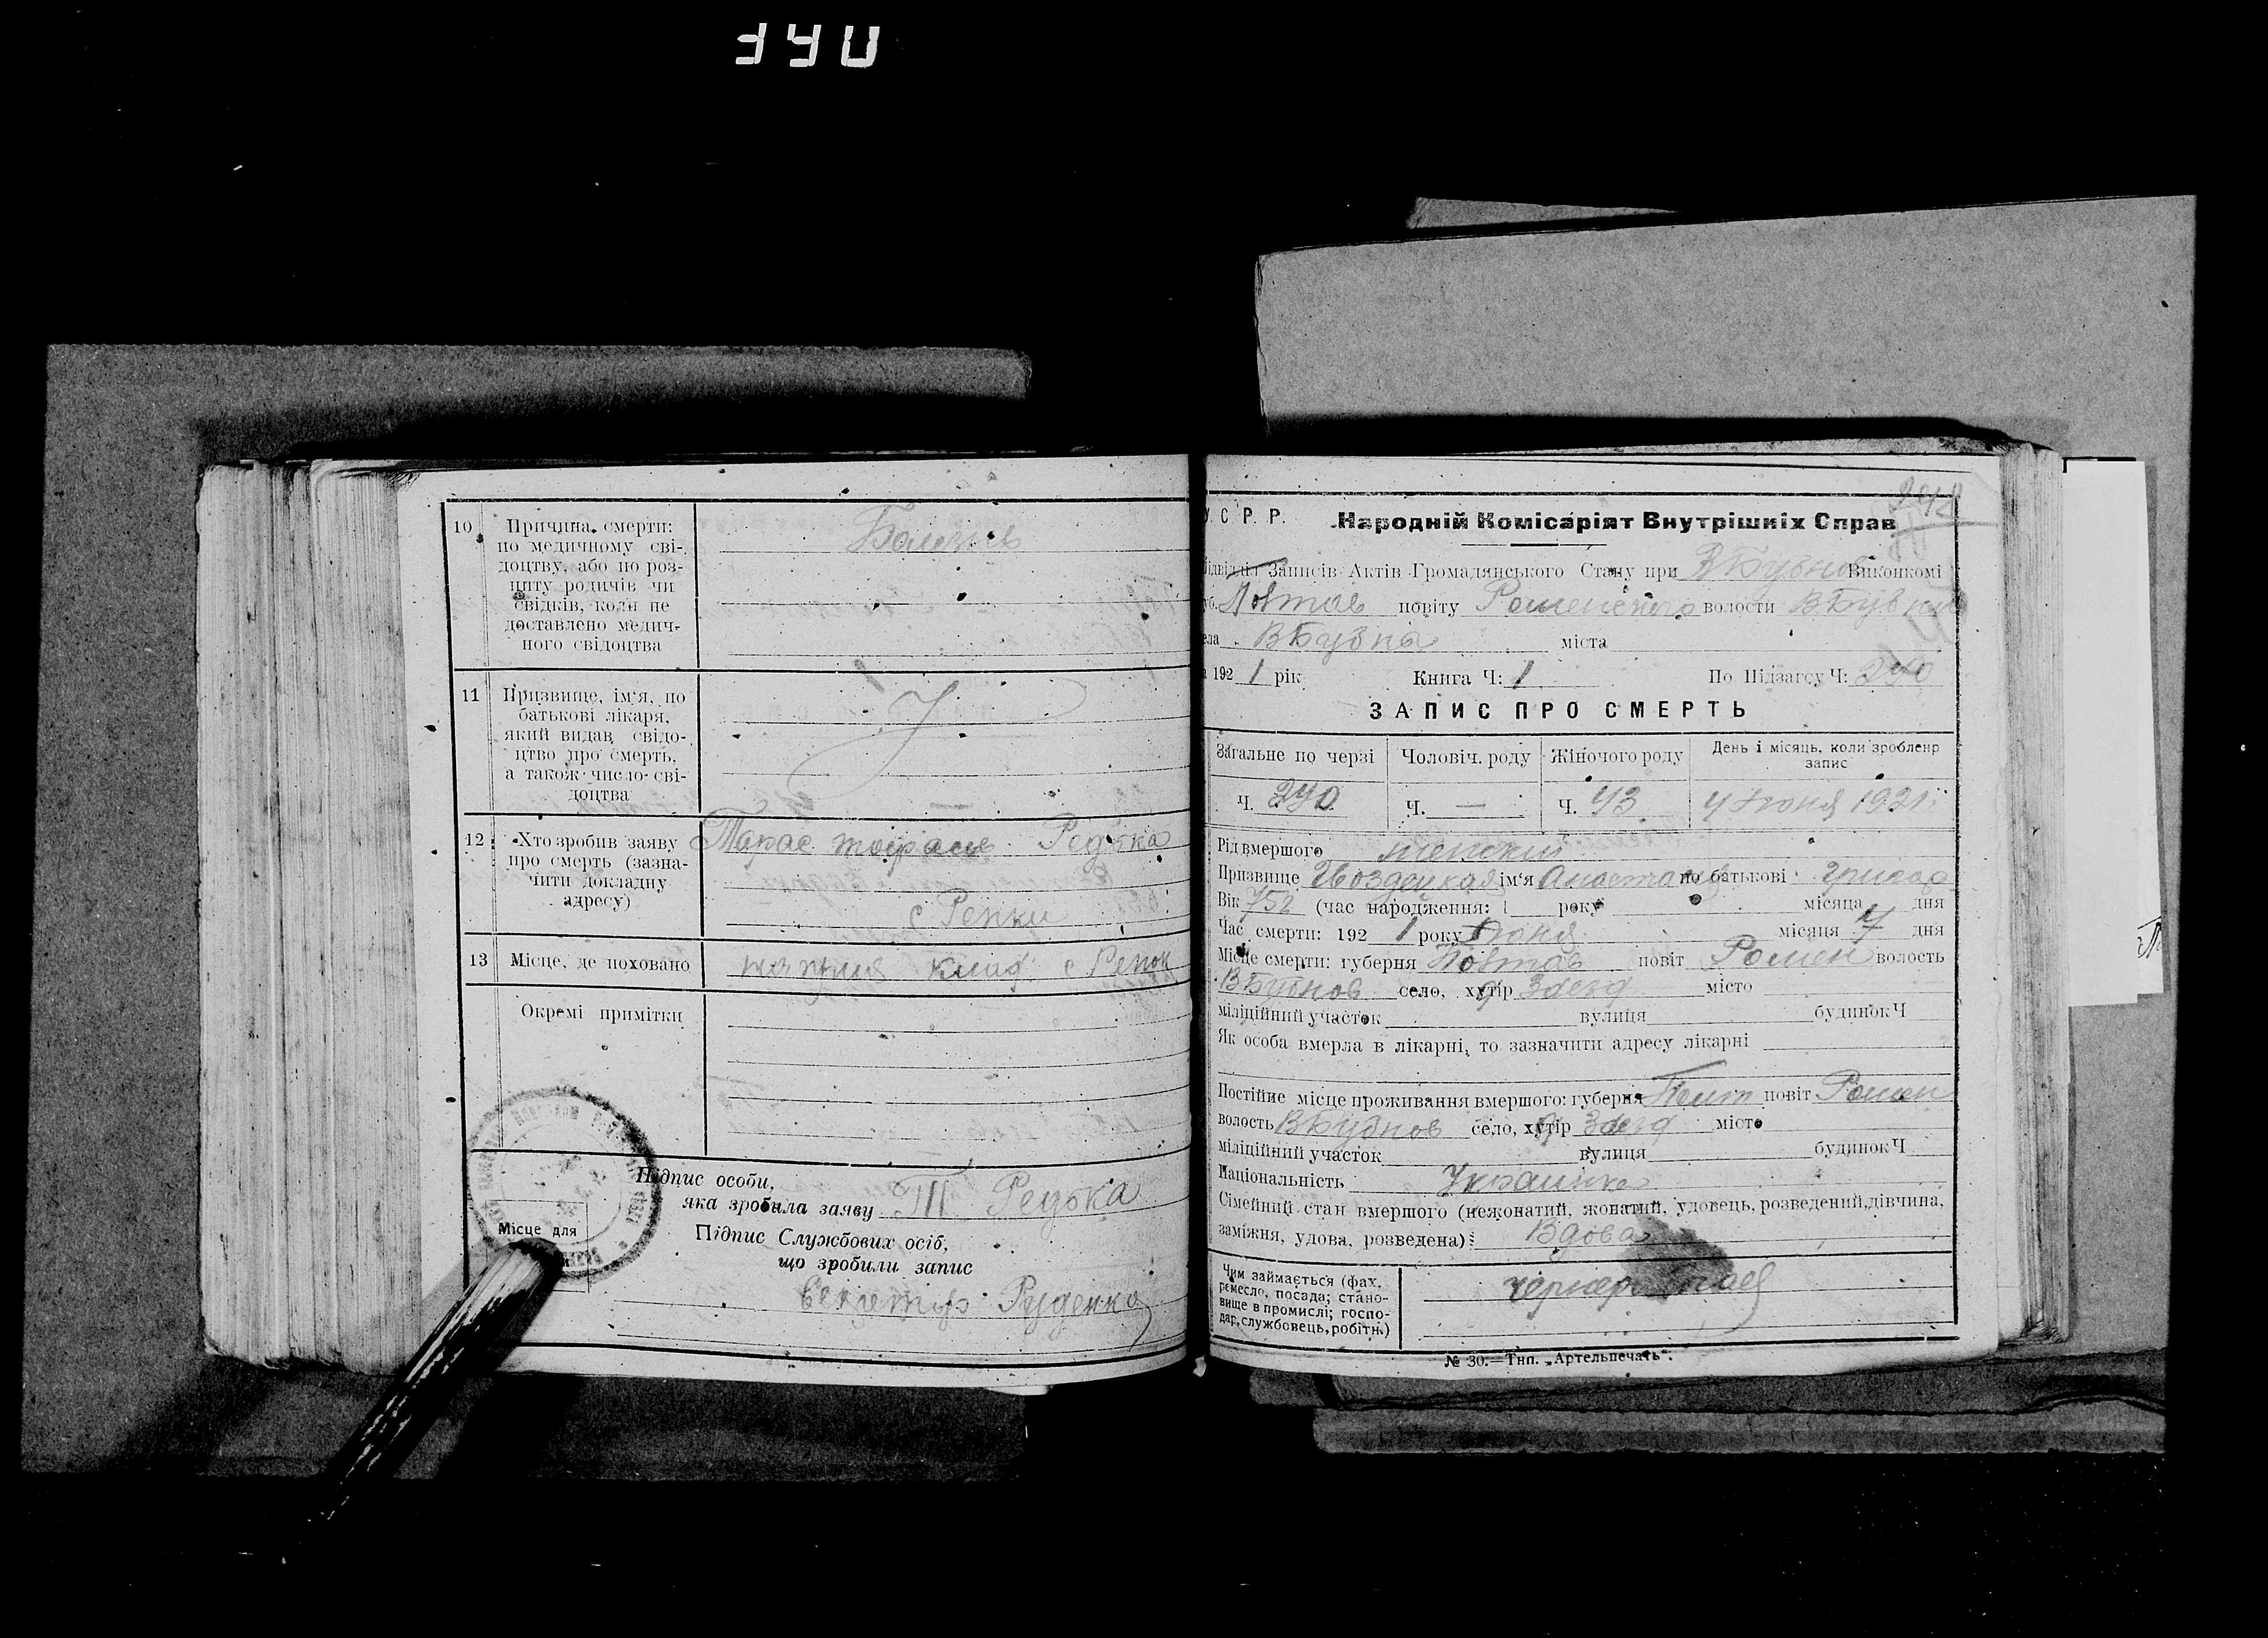 340
10 Причина смерти: Болезнь
по медичному сві-
доцтву, або по роз-
питу родичів чи
свідків, коли не
доставлено медич-
ного свідоцтва
11 Призвище, ім'я, по
батькові лікаря,
який видав свідо-
цтво про смерть,
а також число сві-
доцтва
12 Хто зробив заяву Тарас Редька
про смерть (зазна-
чити докладну
адресу) с Репки
13 Місце, де поховано с Репок
Окремі примітки
Місце для
Підпис особи,
яка зробила заяву Редька
Підпис Службових осіб,
що зробили запис
Секретар Руденко
У. С. Р. Р. Народній Комісаріят Внутрішніх Справ
Підвідділ Записів Актів Громадянського Стану при ВБубнов Виконкомі
Губ. Полтав повіту Роменского волости ВБубнов
села ВБубна міста
за 1921 рік Книга Ч: 1 По Підзагсу Ч: 240
ЗАПИС ПРО СМЕРТЬ
Загальне по черзі Чоловіч. роду Жіночого роду День і місяць, коли зроблено
запис
Ч. 240 Ч. — Ч. 43 Июня 1921
Рід вмершого женский
Призвище Гвоздецкая ім'я Анастас по батькові Григор
Вік 75 (час народження: 1 року місяця дня
Час смерти: 1921 року Июня місяця 7 дня
Місце смерти: губерня Полтав повіт Ромен волость
ВБубнов село, хутір місто
міліційний участок вулиця будинок Ч
Як особа вмерла в лікарні, то зазначити адресу лікарні
Постійне місце проживання вмершого: губерня Полт повіт Ромен
волость ВБубнов село, хутір місто
міліційний участок вулиця будинок Ч
Національність Украинка
Сімейний стан вмершого (нежонатий, жонатий, удовець, розведений, дівчина,
заміжня, удова, розведена): Вдова
Чим займається (фах,
ремесло, посада; стано-
вище в промислі; госпо-
дар, службовець, робітн.)
№ 30.—Тип. „Артельпечать“.